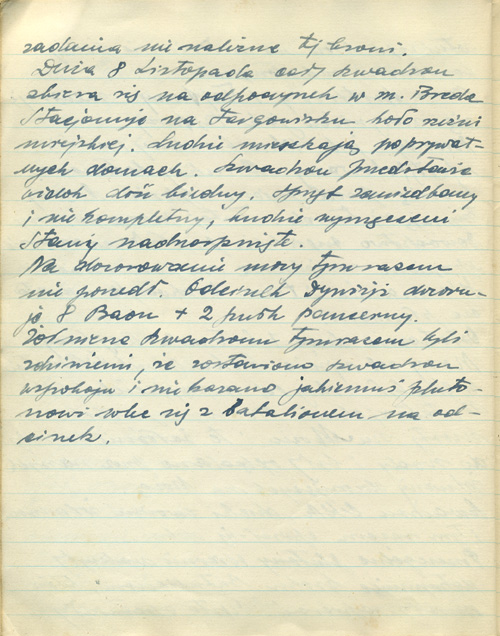 zadania nie należne tej broni.
Dnia 8 Listopada cały szwadron
zbiera się na odpoczynek w m. Breda
Stacjonuje na Targowisku koło rzeźni
miejskiej. Ludzie mieszkają po prywat-
nych domach. Szwadron przedstawia
widok dość biedny. Sprzęt zaniedbany
i nie kompletny, ludzie wymęczeni
Stany nadszarpnięte.
Na dozorowanie mozy tymczasem
nie poszedł. Odcinek Dywizji dozoru-
je 8 Baon + 2 pułk pancerny.
Żołnierze szwadronu tymczasem byli
zdziwieni, że zostawiono szwadron
w spokoju i nie kazano jakiemuś pluto-
nowi wlec się z batalionem na od-
cinek.